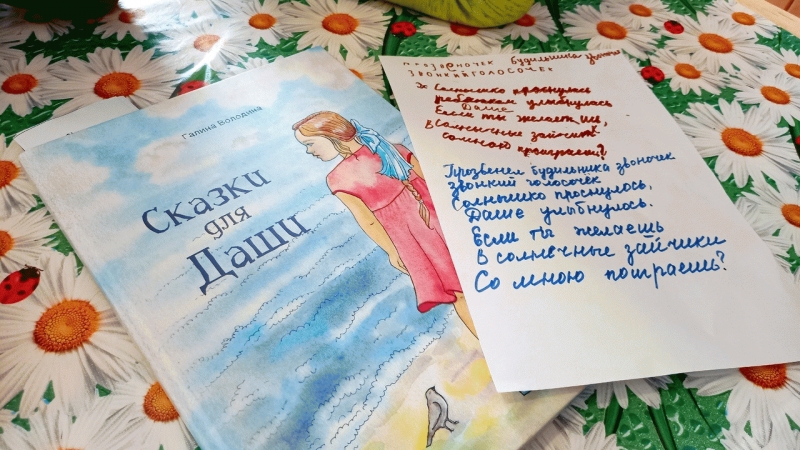 Галина Володина
Сказки
для
Даши
будильника
ЗВОНКИЙ ГОЛОСОЧЕК
Солнышко проснулось
улыбнулось
Даше
Если ты
В солнечные зайчики
со мною поиграешь?
Прозвенел будильника звоночек
звонкий голосочек
Солнышко проснулось,
Даше улыбнулось.
Если ты желаешь
В солнечные зайчики
Со мною поиграешь?